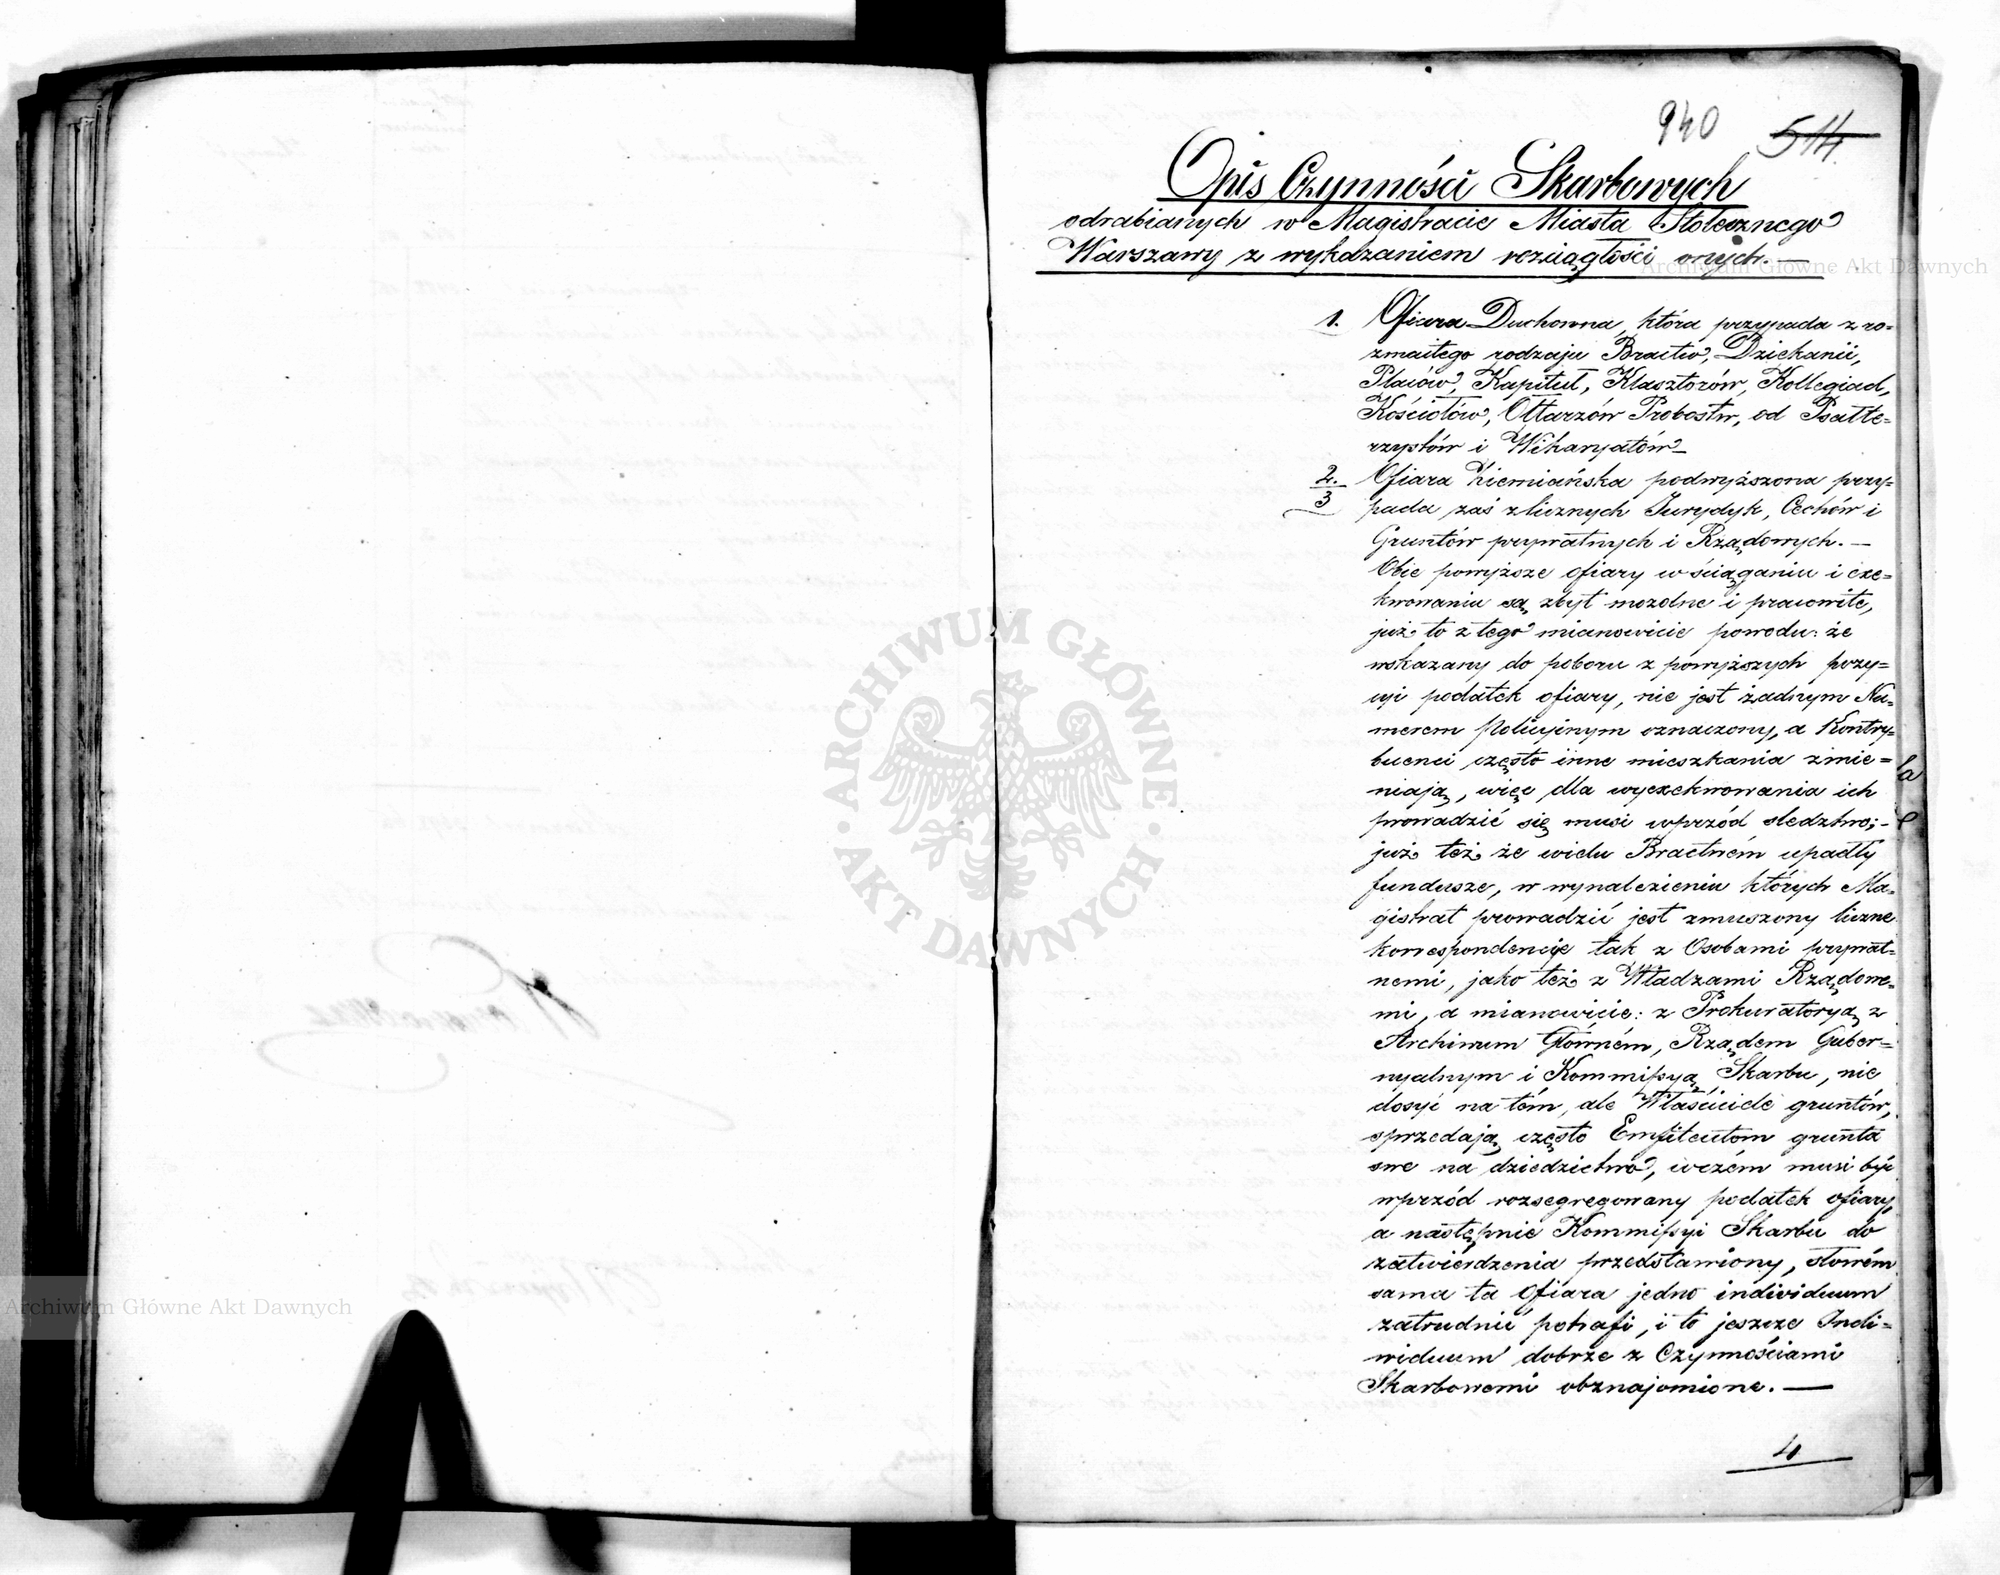 940 514.
Opis Czynności Skarbowych
odrabianych w Magistracie Miasta Stołecznego
Warszawy z wykazaniem rozciągłości onych. —
1. Ofiara Duchowna, która przypada z ro=
zmaitego rodzaju Bractw, Dziekanii,
Placów, Kapituł, Klasztorów, Kollegiad,
Kościołów, Ołtarzów Probostw, od Psałte=
rzystów i Wikaryatów —
2. Ofiara Ziemiańska podwyższona przy=
3 pada zaś z licznych Jurydyk, Cechów i
Gruntów prywatnych i Rządowych. —
Obie powyższe ofiary w ściąganiu i exe=
kwowaniu są zbyt mozolne i pracowite,
już to z tego mianowicie powodu: że
wskazany do poboru z powyższych przy=
czyn podatek ofiary, nie jest żadnym Nu=
merem Policyjnym oznaczony, a Kontry=
buenci często inne mieszkania zmie=
niają, więc dla wyexekwowania ich
prowadzić się musi wprzód śledztwo; –
już też że wielu Bractwóm upadły
fundusze, w wynalezieniu których Ma=
gistrat prowadzić jest zmuszony liczne
korrespondencye tak z Osobami prywat=
nemi, jako też z Władzami Rządowe=
mi, a mianowicie: z Prokuratoryą z
Archiwum Głównem, Rządem Guber=
nyalnym i Kommissyą Skarbu, nie
dosyć na tém, ale Właściciele gruntów,
sprzedają często Emfiteutom grunta
swe na dziedzictwo, wczém musi być
wprzód rozsegregowany podatek ofiary,
a następnie Kommissyi Skarbu do
zatwierdzenia przedstawiony, słowém
sama ta Ofiara jedno individuum
zatrudnić potrafi, i to jeszcze Indi=
widuum dobrze z Czynnościami
Skarbowemi obznajomione. —
4
ARCHIWUM GŁÓWNE
AKT DAWNYCH
Archiwum Główne Akt Dawnych
Archiwum Główne Akt Dawnych